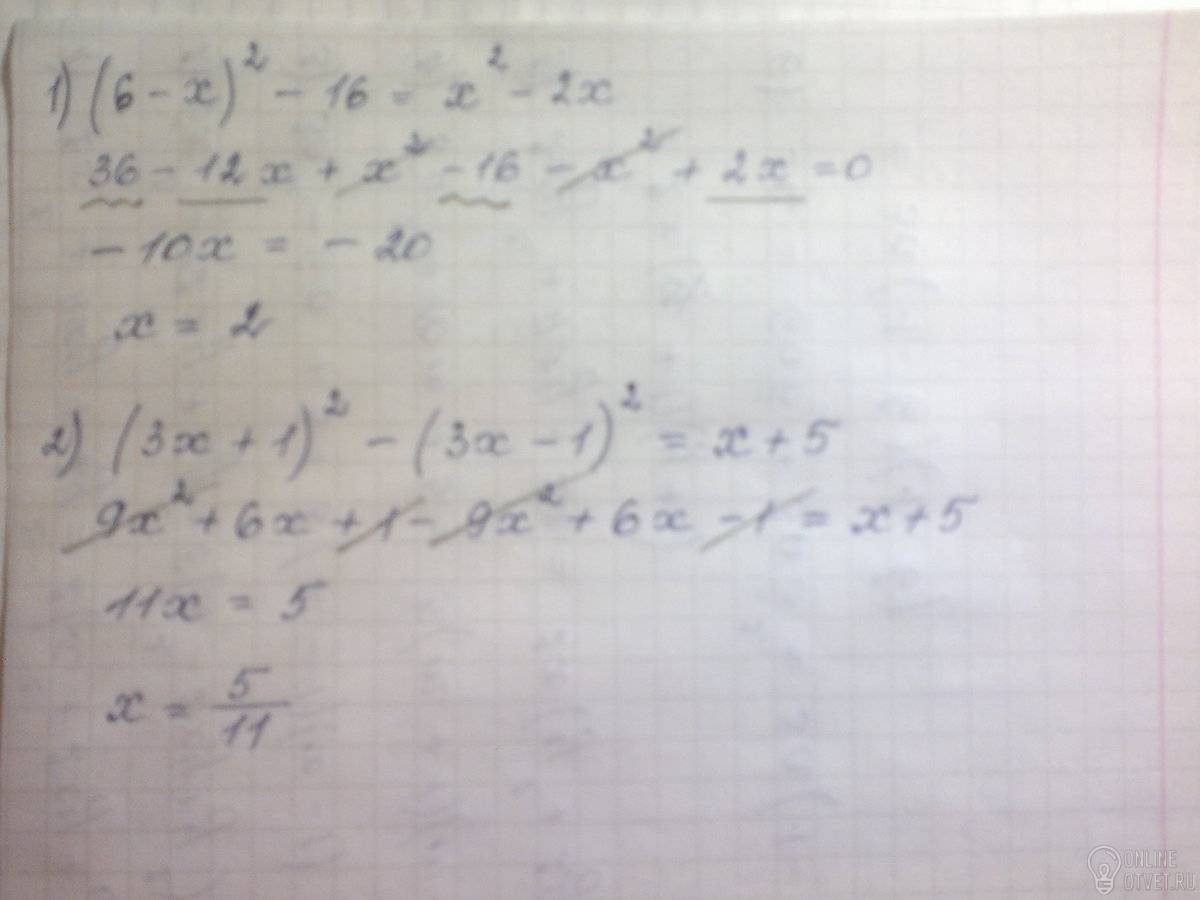 1) (6 - x)² - 16 = x² - 2x
36 - 12x + x² - 16 - x² + 2x = 0
- 10x = - 20
x = 2
2) (3x + 1)² - (3x - 1)² = x + 5
9x² + 6x + 1 - 9x² + 6x - 1 = x + 5
11x = 5
x = 5/11
ONLINE
OTVET.RU